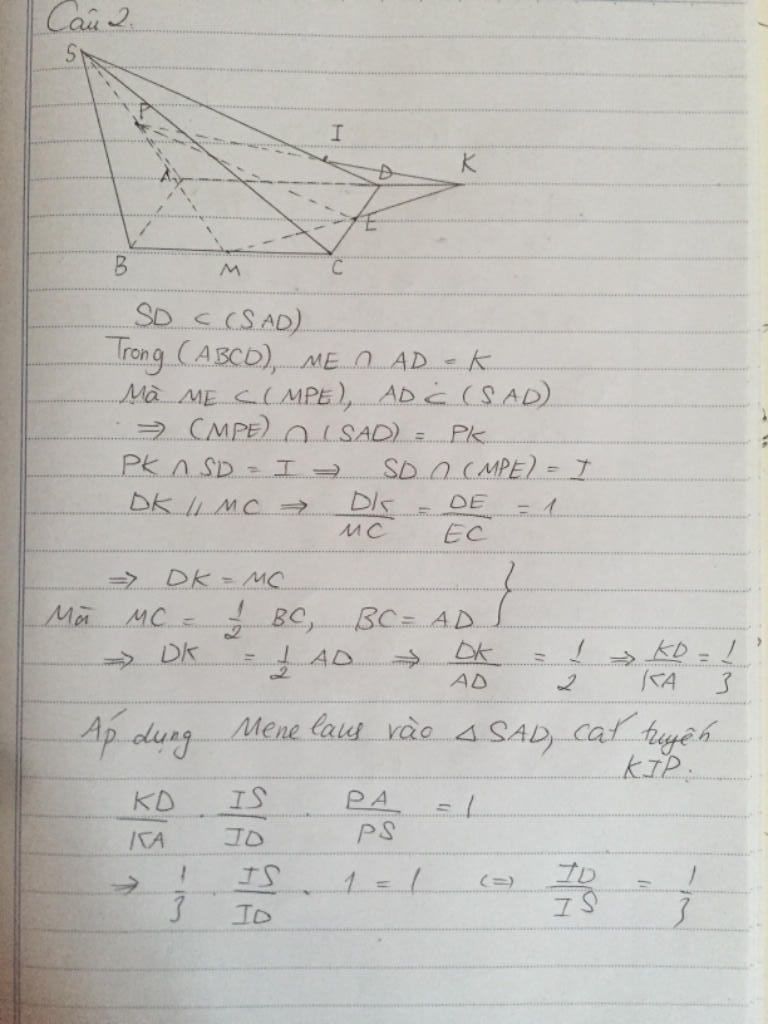 Câu 2.
S
P
I
K
A
D
E
B
M
C
SD ⊂ (SAD)
Trong (ABCD), ME ∩ AD = K
Mà ME ⊂ (MPE), AD ⊂ (SAD)
⇒ (MPE) ∩ (SAD) = PK
PK ∩ SD = I ⇒ SD ∩ (MPE) = I
DK // MC ⇒ DK/MC = DE/EC = 1
⇒ DK = MC
Mà MC = 1/2 BC, BC = AD }
⇒ DK = 1/2 AD ⇒ DK/AD = 1/2 ⇒ KD/KA = 1/3
Áp dụng Menelaus vào △SAD, cát tuyến
KIP:
KD/KA . IS/ID . PA/PS = 1
⇒ 1/3 . IS/ID . 1 = 1 ⇔ ID/IS = 1/3